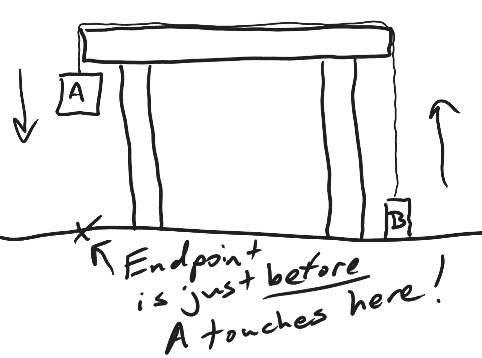 A
B
Endpoint
is just before
A touches here!